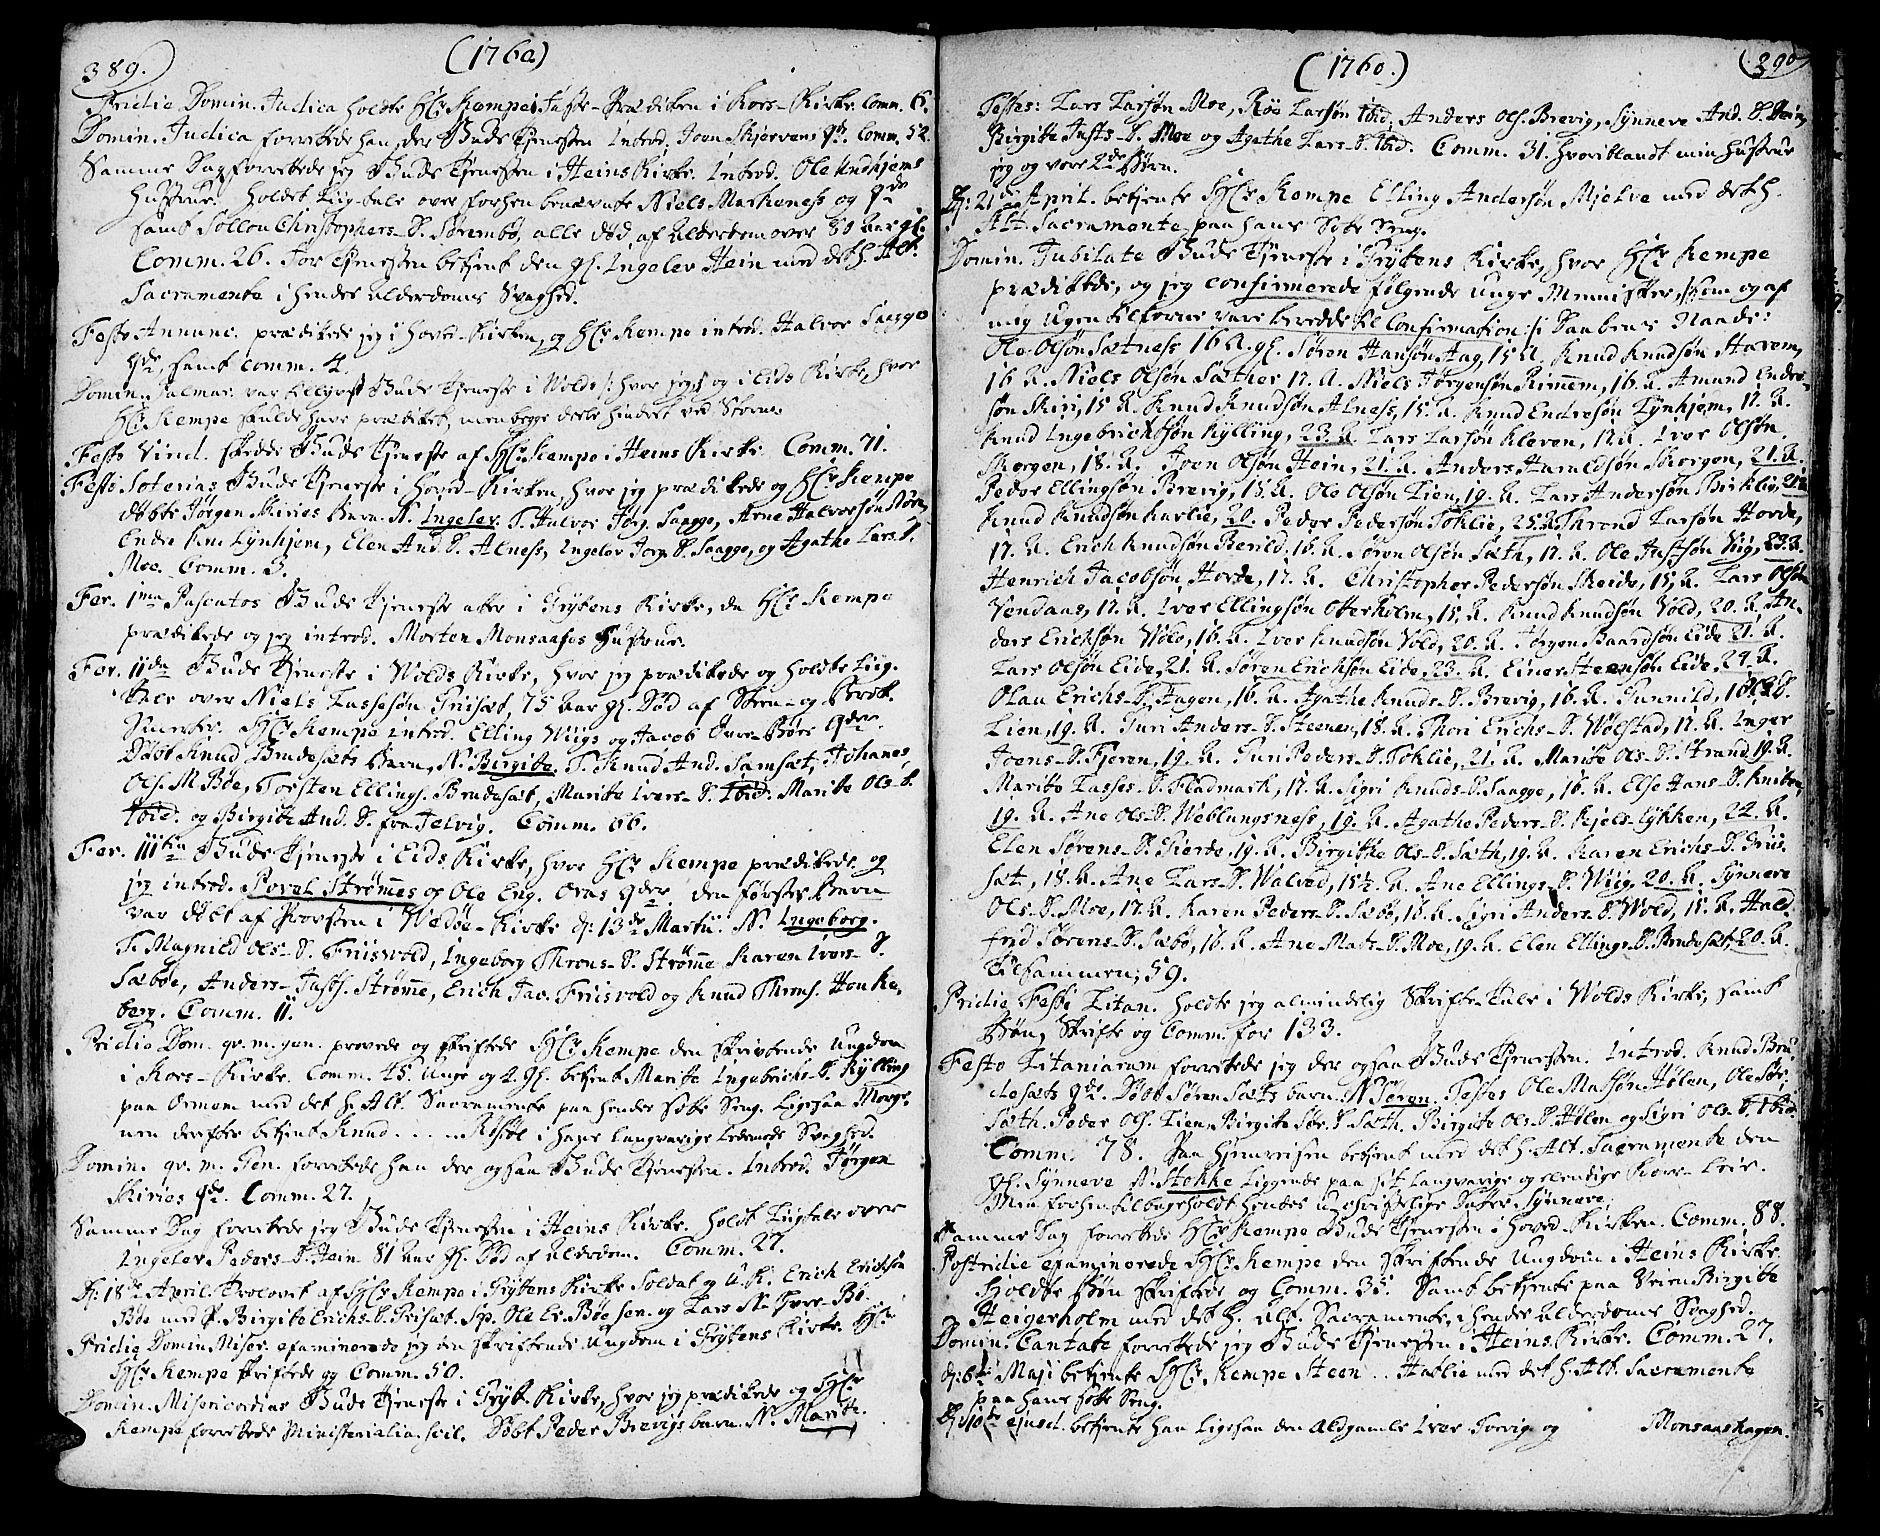 389.
(1760)
Pridie Domin. Judica holdte Hr. Kempe Faste-Prædiken i Kors-Kirke. Comm. 6.
Domin. Judica forrettede han der Guds Tjenesten. Introd. Joen Skjervens qde. Comm. 52.
Samme Dag forrettede jeg Guds Tjenesten i Heins Kirke. Introd. Ole Undhjems
Hustrue. Holdet Liig-tale over forhen benævnte Niels Markeness og qde
samt Sollou Christophers-D. Sørembø, alle død af Alderdom over 80 Aar gl.
Comm. 26. For Tjenesten betjent den gl. Ingeler Hein med det h. Alt.
Sacramente i hendes Alderdoms Svaghed.
Festo Annunc. prædikede jeg i Hoved-Kirken, og Hr. Kempe introd. Halvor Saagge
qde, samt comm. 4.
Domin. Palmar. var tillyvst Guds Tjeneste i Wolds /: hvor jeg :/ og i Eids Kirke, hvor
Hr. Kempe skulde have prædiket, men begge dele hindret ved Storm.
Festo Virid. skedde Guds Tjeneste af Hr. Kempe i Heins Kirke. Comm. 71.
Festo Soterias Guds Tjeneste i Hoved-Kirken, hvor jeg prædikede og Hr. Kempe
døbte Jørgen Skiries Barn N. Ingeler. T. Halvor Jørg. Saagge, Arne Halvorsøn
Endre Kn. Lynhjem, Elen And. D. Alness, Ingeler Jørg. D. Saagge, og Agathe Lars D.
Moe. Comm. 3.
Fer. 1ma Paschatos Guds Tjeneste atter i Grytens Kirke, da Hr. Kempe
prædikede og jeg introd. Morten Monsaases Hustrue.
Fer. IIda Guds Tjeneste i Wolds Kirke, hvor jeg prædikede og holdte Liig-
tale over Niels Tassesøn Griset, 75 Aar gl. Død af Steen- og Brok-
Hr. Kempe introd. Elling Wiigs og Jacob Bøes qder.
Døbt Knud Brudesæts Barn, N. Birgite. T. Knud And. Samset, Johanes
Ols. M. Bøe, Torsten Ellings. Brudeset, Marite Ivers-D. ibid. Marite Ols-D.
ibid. og Birgite And. D. fra Jelvig. Comm. 66.
Fer. IIItia Guds Tjeneste i Eids Kirke, hvor Hr. Kempe prædikede og
jeg introd. Povel Strømmes og Ole Eng. Oras qder. Den førstes Barn
var døbt af Provsten i Wedøe-Kirke d. 13de Martii. N. Ingeborg.
T. Magnild Ols-D. Friisvold, Ingeborg Throns-D. Strømme Karen Ivers-D.
Sæbøe, Anders Justs. Strømme, Erich Jac. Friisvold og Knud Throns. Honke-
berg. Comm. 11.
Pridie Dom. qv. m. gen. prøvede og skriftede Hr. Kempe den skriftende Ungdom
i Kors-Kirke. Comm. 45. Unge og 2 gl. betjent Marite Ingebrichs-D. Kylling
paa Ormem med det h. Alt. Sacramente paa hendes Sotte Seng. Ligesaa Morge-
nen derefter betjent Knud . . . . . i hans langvarige Svaghed.
Domin. qv. m. Gen. forrettede han der ogsaa Guds Tjenesten. Introd. Jørgen
Skiries qde. Comm. 27.
Samme Dag forrettede jeg Guds Tjenesten i Heins Kirke. holdt Liigtale over
Ingeler Peders-D. Hein 81 Aar gl. Død af Alderdom. Comm. 27.
D. 18de April Trolovet af Hr. Kempe i Grytens Kirke Soldat og U. K. Erich Erichsøn
Bøe med P. Birgite Erichs-D. Griset. Sp. Ole Er. Bøe sen. og Lars N. Bø.
Pridie Domin. Miser. examinerede jeg den skriftende Ungdom i Grytens Kirke.
Hr. Kempe skriftede og Comm. 50.
Domin. Misericordias Guds Tjeneste i Gryt. Kirke, hvor jeg prædikede og Hr.
Kempe forrettede Ministerialia, scil. Døbt Peder Brevigs barn. N. Marite.
390
(1760.)
Testes: Lars Larsøn Moe, Roe Larsøn ibid. Anders Ols. Brevig, Synneve And. D. Hein,
Birgite Justs-D. Moe og Agathe Lars-D. ibid. Comm. 31. hvoriblandt min Hustrue
jeg og vore 2de Børn.
D. 21de April. betjente Hr. Kempe Elling Andersøn Mjelve med det h.
Alt. Sacramente paa hans Sotte Seng.
Domin. Jubilate Guds Tjeneste i Grytens Kirke, hvor Hr. Kempe
prædikede, og jeg confirmerede følgende unge Mennisker, som og af
mig ugentilforne vare beredde til Confirmation :/: i Daabens Naade:
Ole Olsøn Sætness 16 A. gl. Søren Hansøn Hag, 15 A. Knud Knudsøn Starem,
16 A. Niels Olsøn Sæther 17. A. Niels Jørgensøn Rimem, 16. A. Amund Endre-
søn Skiri, 15 A. Knud Knudsøn Alness, 15. A. Knud Endresøn Lynhjem, 17. A.
Knud Ingebrichtsøn Kylling, 23. A. Lars Larsøn Kleven, 17. A. Iver Olsøn
Skorgen, 18. A. Joen Olsøn Hein, 21. A. Anders Haraldsøn Skorgen, 21. A.
Peder Ellingsøn Brevig, 15. A. Ole Olsøn Lien, 19. A. Lars Andersøn Birkelie,
Knud Knudsøn Karlie, 20. Peder Pedersøn Toklie, 25. A. Thrond Larsøn Horde,
17. A. Erich Knudsøn Berild, 16. A. Søren Olsøn Sæth, 17. A. Ole Justsøn Viig, 23. A.
Henrich Jacobsøn Horde, 17. A. Christopher Pedersøn Skeide, 15. A. Lars Olsøn
Vendaas, 17. A. Iver Ellingsøn Otterholm, 15. A. Knud Knudsøn Vold, 20. A. An-
ders Erichsøn Wold, 16. A. Iver Knudsøn Vold, 20. A. Jørgen Baardsøn Eide 21. A.
Lars Olsøn Eide, 21. A. Søren Erichsøn Eide, 23. A. Einer Steensøn Eide, 24. A.
Olau Erichs-D. Hagen, 16. A. Agathe Knuds-D. Brevig, 16. A. Gunnild
Lien, 19. A. Guri Anders-D. Steenen, 18. A. Thori Erichs-D. Wølstad, 17. A. Inger
Joens-D. Fjeren, 19. A. Guri Peders-D. Toklie, 21. A. Marite Ols-D. Strand 19. A.
Marite Tasses-D. Fladmark, 17. A. Sigri Knuds-D. Saagge, 16. A. Else Hans-D.
19. A. Ane Ols-D. Weblungsness, 19. A. Agathe Peders-D. Kjels-lykken, 22. A.
Elen Sørens-D. Gierde, 19. A. Birgithe Ols-D. Sæth, 19. A. Karen Erichs-D. Griis-
sæt, 18. A. Ane Lars-D. Walved, 15½. A. Ane Ellings-D. Wiig, 20. A. Synneve
Ols-D. Moe, 17. A. Karen Peders-D. Sæbø, 16. A. Sigri Anders-D. Wold, 15. A. Hald-
frid Sørens-D. Sæbø, 16. A. Ane Mats-D. Moe, 19. A. Elen Ellings-D. Brudesæt, 20. A.
Tilsammen; 59.
Pridie Festi Litan. holdte jeg almindelig Skrifte-Tale i Wolds Kirke, samt
Bøn, Skrifte og Comm. for 133.
Festo Litaniarum forrettede jeg der ogsaa Guds Tjenesten. Introd. Knud Bru-
desæts qde. Døbt Søren Sæts barn. N. Søren. Testes Ole Matsøn Hølen, Ole Sør.
Sæth. Peder Ols. Lien, Birgite Sør. D. Sæth. Birgite Ols. D. Holm og Sigri Ols. D. ibid.
Comm. 78. Paa Hjemreisen betjent med det h. Alt. Sacramente den
gl. Synneve N. Stokke liggende paa sit langvarige og elendige Kors-Leie.
Men forhen tilbageholdt hendes uchristelige Dater, Synneve.
Samme Dag forrettede Hr. Kempe Guds Tjenesten i Hoved-Kirken. Comm. 88.
Postridie examinerede Hr. Kempe den skriftende Ungdom i Heins Kirke
Holdte Bøn skriftede og Comm. 35. Samt betjente paa Veien Birgite
Heigerholm med det h. Alt. Sacramente, i hendes Alderdoms Svaghed.
Domin. Cantate forrettede jeg Guds Tjenesten i Heins Kirke. Comm. 27.
D. 6te Maji betjente Hr. Kempe Steen . . Hatlie med det h. Alt. Sacramente
paa hans Sotte Seng.
D. 10de ejusd. betjente han ligesaa den Aldgamle Iver Torvig og Monsaashagen.